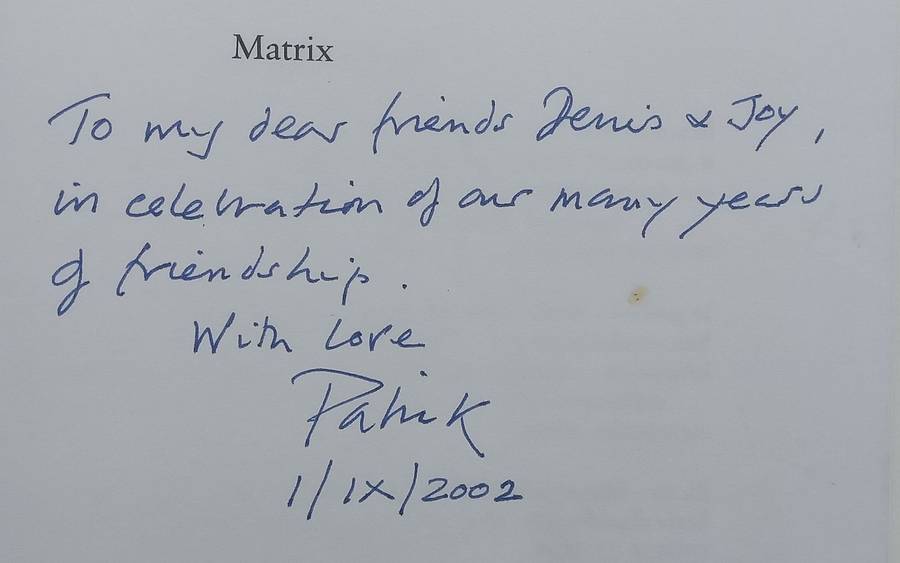 Matrix
To my dear friends Denis & Joy,
in celebration of our many years
of friendship.
With love
Patrick
1/IX/2002